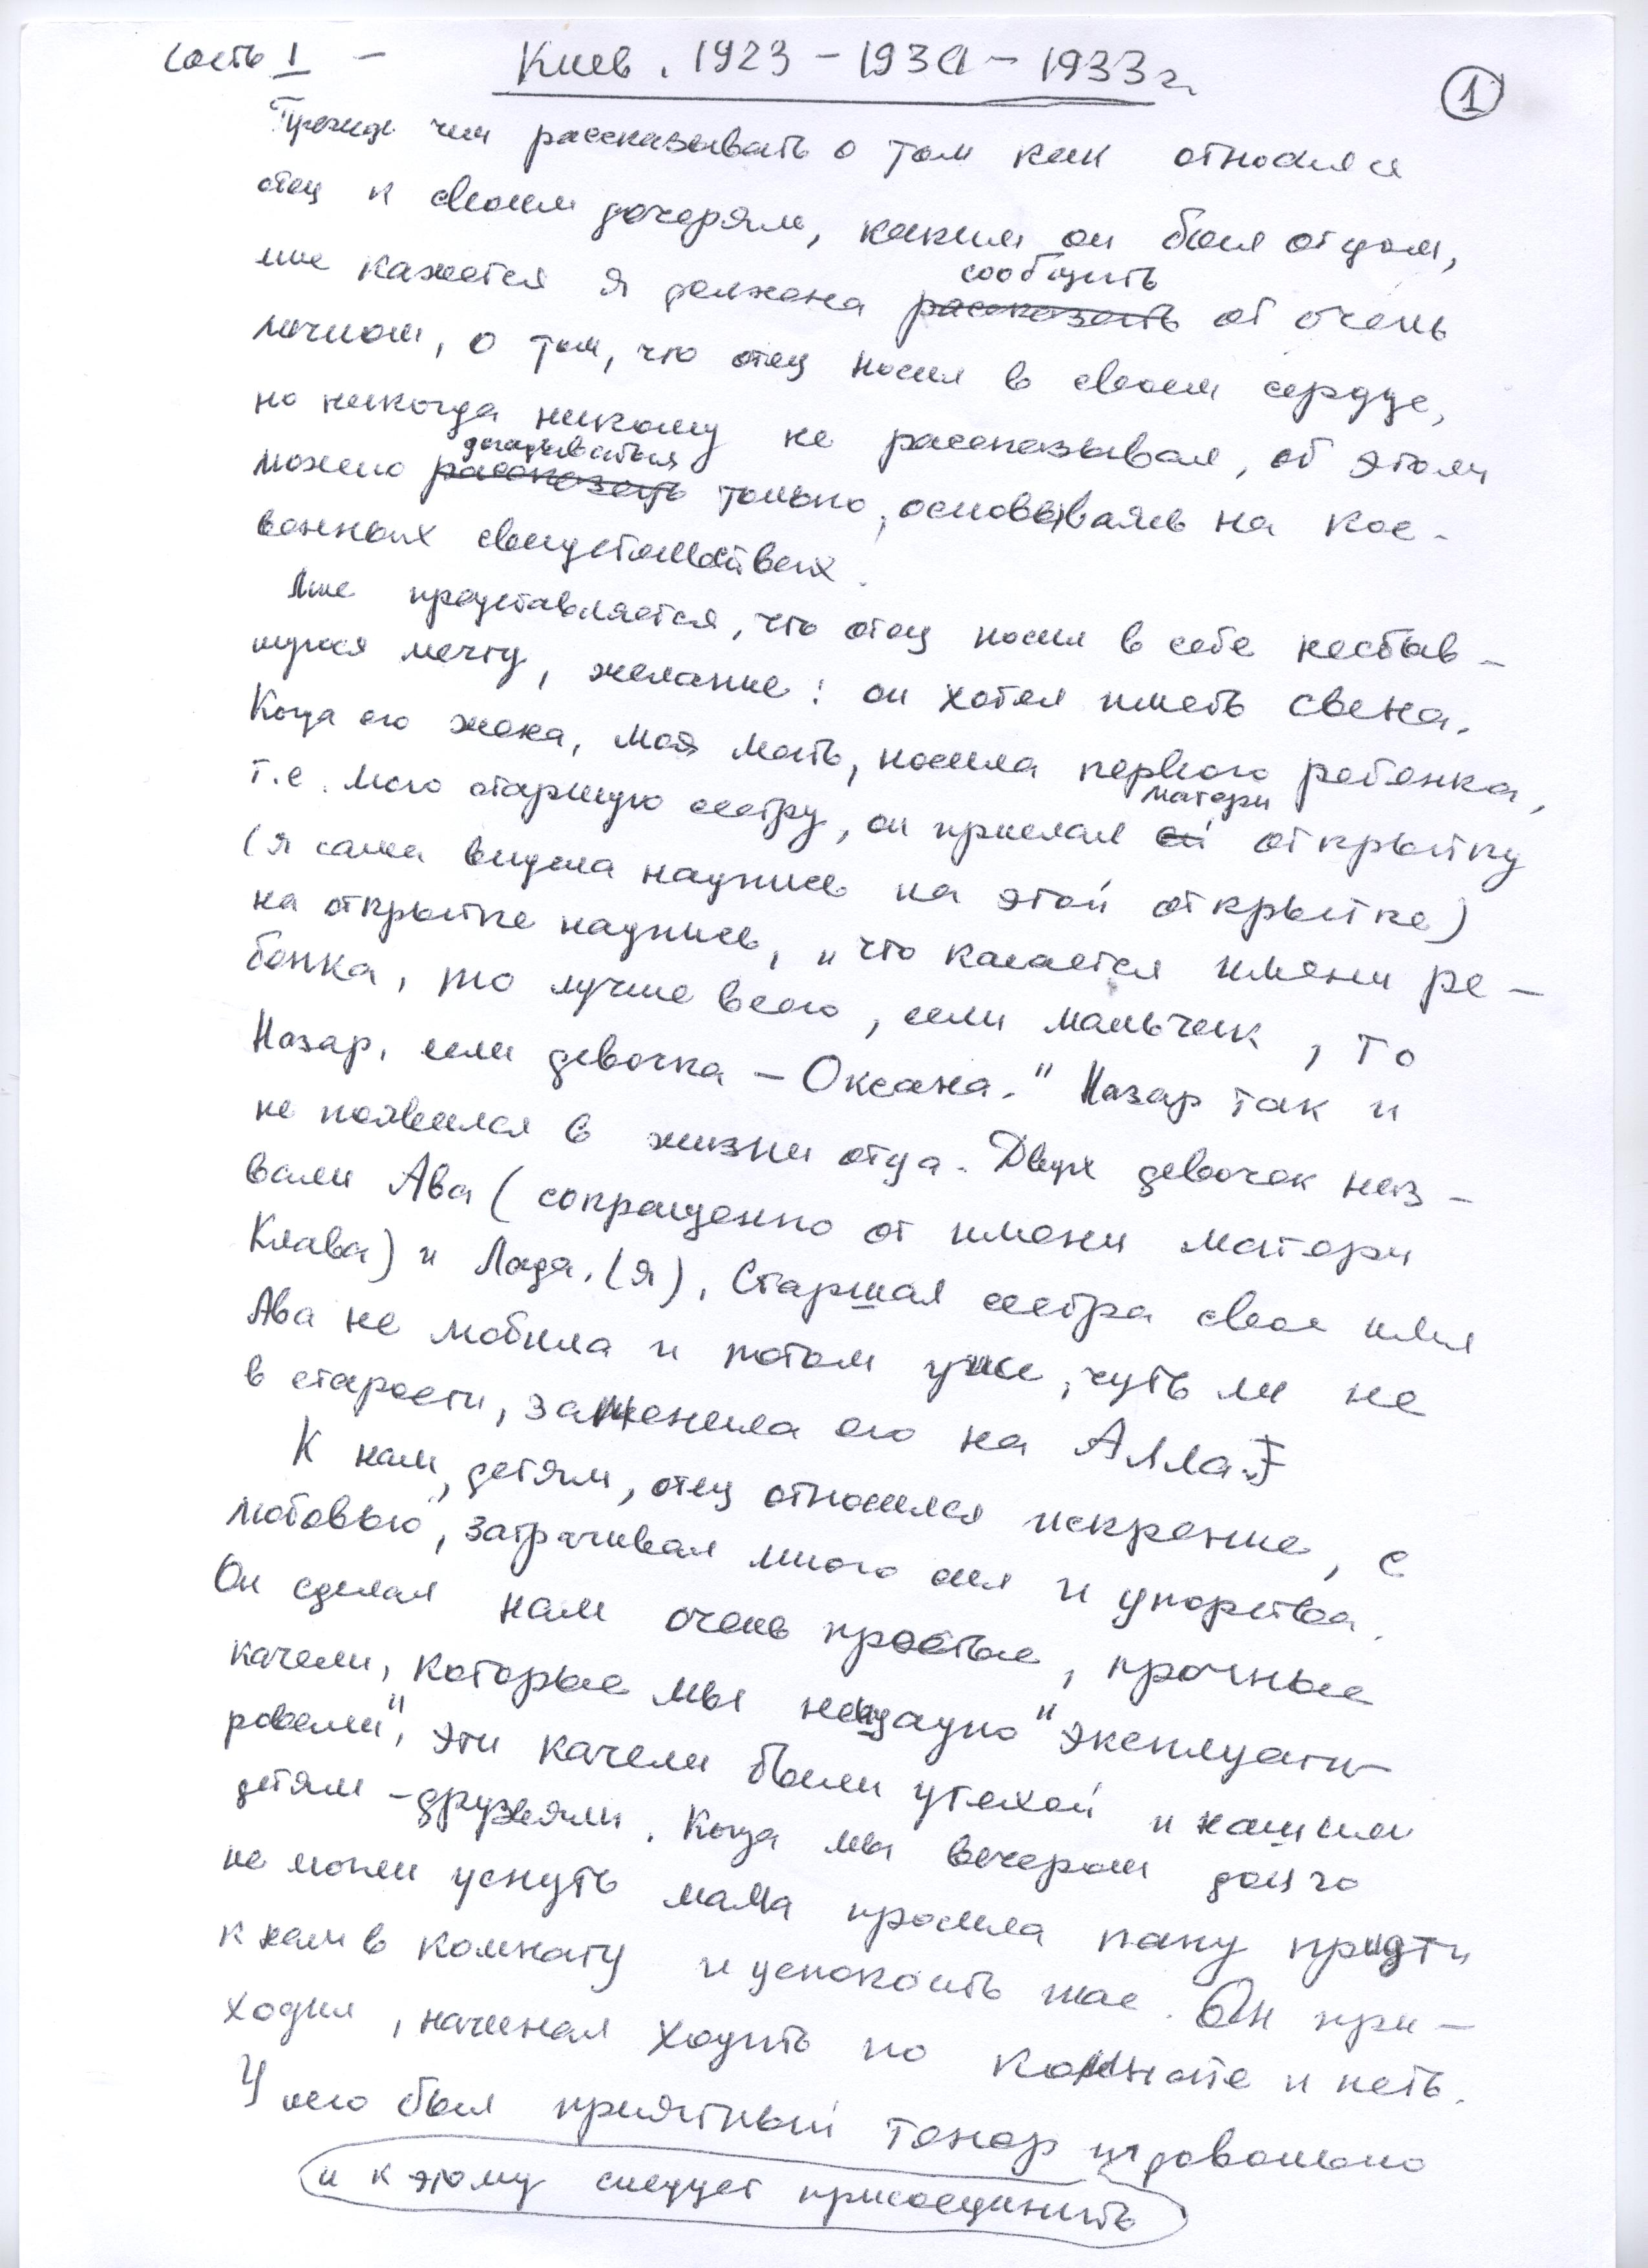 Часть I – Киев. 1923 – 193 – 1933 г.
1
Прежде чем рассказывать о том как относился
отец к своим дочерям, каким он был отцом,
сообщить
мне кажется я должна рассказать об очень
личном, о том, что отец носил в своем сердце,
но никогда никому не рассказывал, об этом
догадываться
можно рассказать только, основываясь на кос-
венных свидетельствах.
Мне представляется, что отец носил в себе несбыв-
шуюся мечту, желание: он хотел иметь сына.
Когда его жена, моя мать, носила первого ребенка,
матери
т.е. мою старшую сестру, он прислал ей открытку
(я сама видела надпись на этой открытке)
на открытке надпись, „что касается имени ре-
бенка, то лучше всего, если мальчик, то
Назар, если девочка – Оксана." Назар так и
не появился в жизни отца. Двух девочек наз-
вали Ава (сокращенно от имени матери
Клава) и Лада. (я). Старшая сестра свое имя
Ава не любила и потом уже, чуть ли не
в старости, заменила его на Алла.
К нам, детям, отец относился искренне, с
любовью, затрачивая много сил и упорства.
Он сделал нам очень простые, прочные
качели, которые мы нещадно "эксплуати-
ровали", эти качели были утехой и нашим
детям-друзьям. Когда мы вечером долго
не могли уснуть мама просила папу придти
к нам в комнату и успокоить нас. Он при-
ходил, начинал ходить по комнате и петь.
У него был приятный тенор и довольно
и к этому следует присоединить